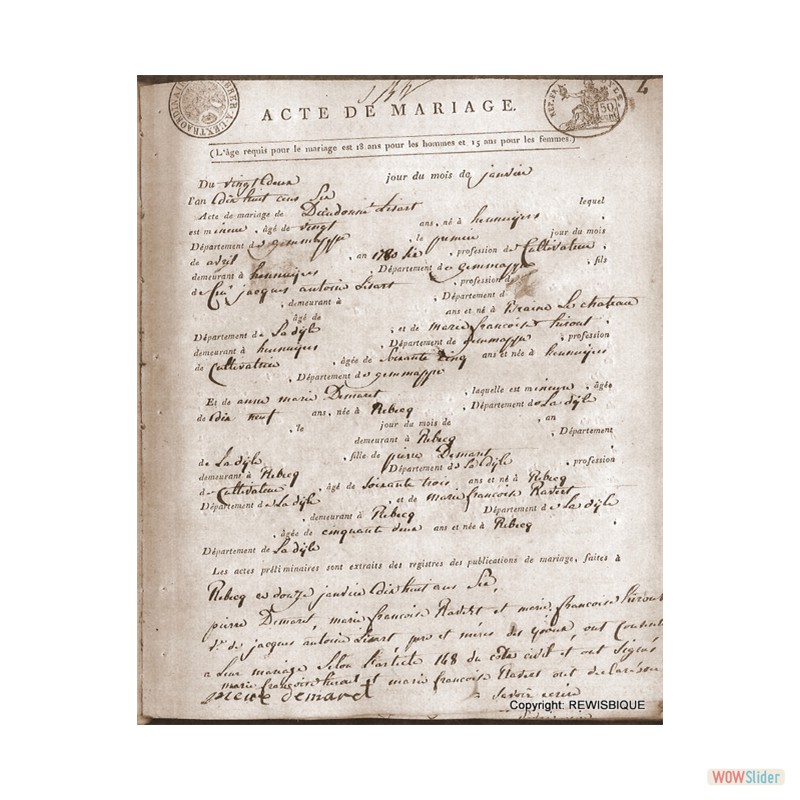 ACTE DE MARIAGE.
(L'âge requis pour le mariage est 18 ans pour les hommes et 15 ans pour les femmes.)
Du vingt deux jour du mois de janvier
l'an dix huit cens six
Acte de mariage de Dieudonné Lisart lequel
est mineur, âgé de vingt ans, né à hennuyers
Département de gemmappe, le premier jour du mois
de avril, an 1780 six, profession de Cultivateur,
demeurant à hennuyers, Département de gemmappe, fils
de jacques antoine Lisart, profession d
, demeurant à, Département d
, âgé de ans et né à Braine Le chateau
Département de La dyle, et de marie françoise
demeurant à hennuyers, Département de gemmappe, profession
de Cultivatrice, âgée de soixante cinq ans et née à hennuyers
, Département de gemmappe
Et de anne marie Demaret, laquelle est mineure, âgée
de dix neuf ans, née à Rebecq, Département de La dyle
, le jour du mois de, an
demeurant à Rebecq, Département
de La dyle, fille de pierre Demaret
demeurant à Rebecq, Département de La dyle, profession
de Cultivateur, âgé de soixante trois ans et né à Rebecq
Département de La dyle, et de marie françoise Ravert
, demeurant à Rebecq Département de La dyle
, âgée de cinquante deux ans et née à Rebecq,
Département de La dyle
Les actes préliminaires sont extraits des registres des publications de mariage, faites à
Rebecq ce douze janvier dix huit cens six,
pierre Demaret, marie françoise Ravert et marie françoise
de jacques antoine Lisart, pere et méres des Epoux, ont
a Leur mariage selon l'article 148 du code civil et ont signés
marie françoise et marie françoise ont declarées
pierre demaret savoir ecrire
Copyright: REWISBIQUE
WOWSlider